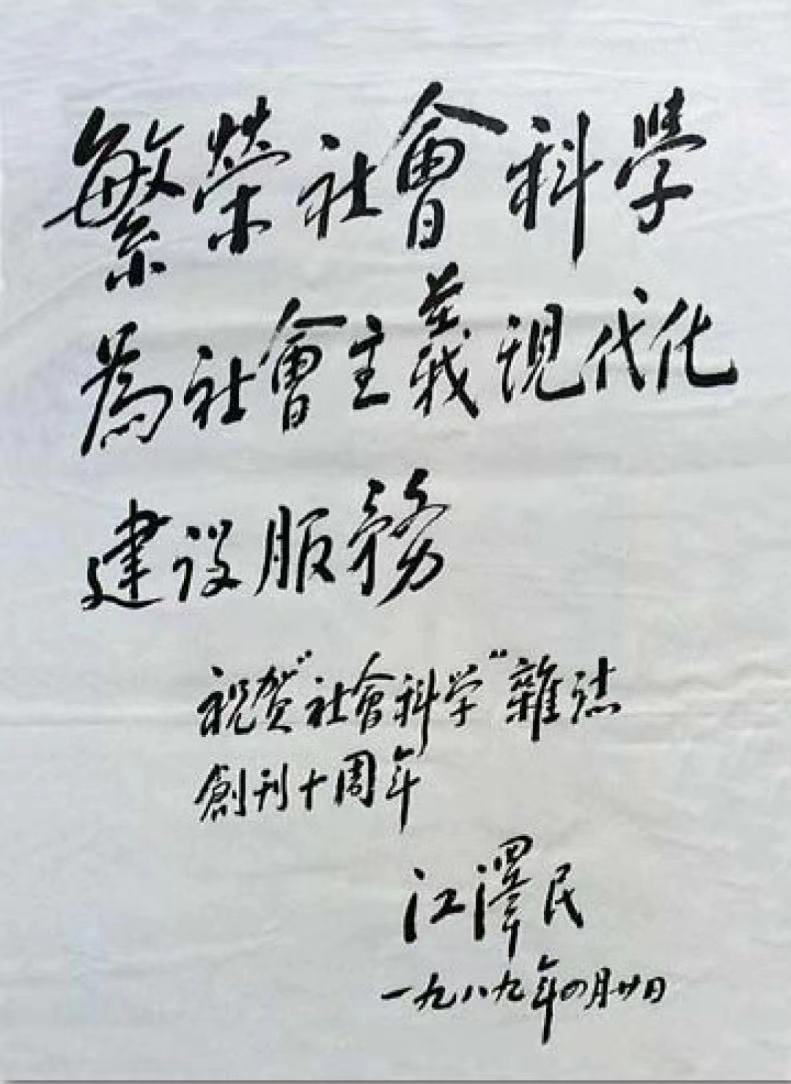 繁榮社會科學
為社會主義現代化
建设服務
祝贺"社會科学"雜誌
創刊十周年
江澤民
一九八九年四月廿日